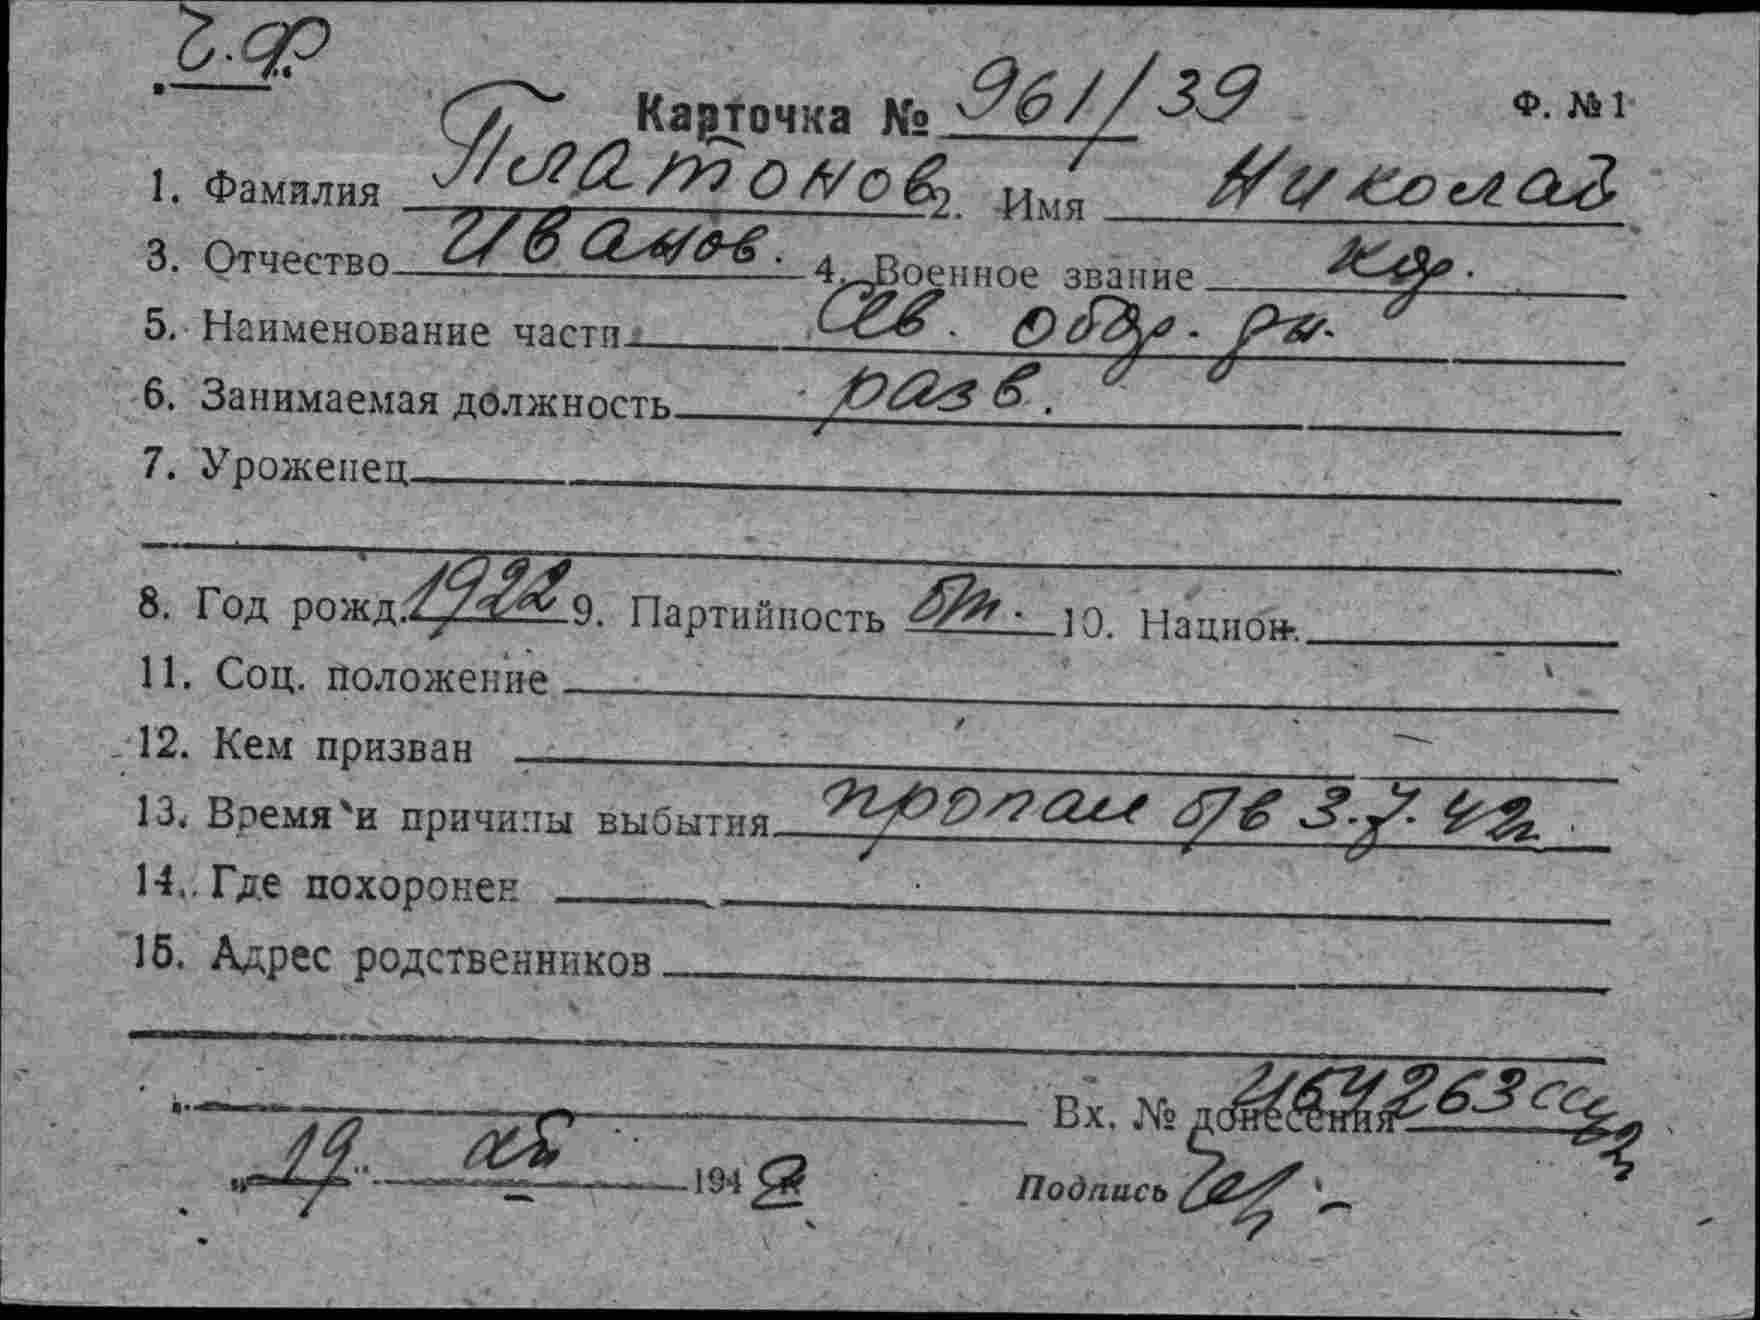 Карточка № 961/39 Ф. №1
1. Фамилия Платонов 2. Имя Николай
3. Отчество Иванов. 4. Военное звание кр.
5. Наименование части Сев. обор. рн.
6. Занимаемая должность разв.
7. Уроженец
8. Год рожд. 1922 9. Партийность б/п. 10. Национ.
11. Соц. положение
12. Кем призван
13. Время и причины выбытия пропал бв 3.7.42
14. Где похоронен
15. Адрес родственников
Вх. № донесения
„19" 1942 Подпись